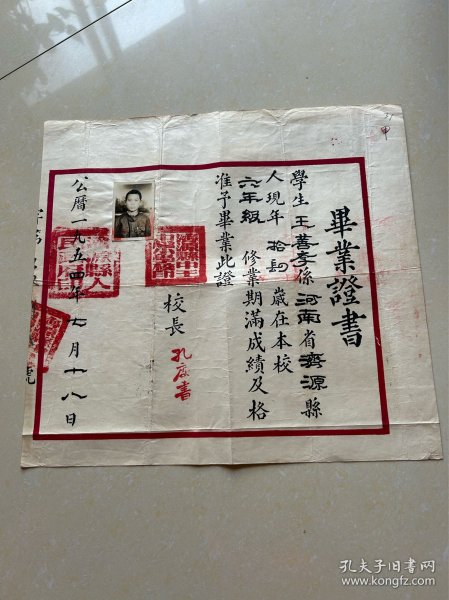 畢業證書
學生王善孝係河南省濟源縣
人現年拾肆歲在本校
六年級修業期滿成績及格
准予畢業此證
校長 孔慶書
公曆一九五四年七月十八日
孔夫子旧书网
www.kongfz.com